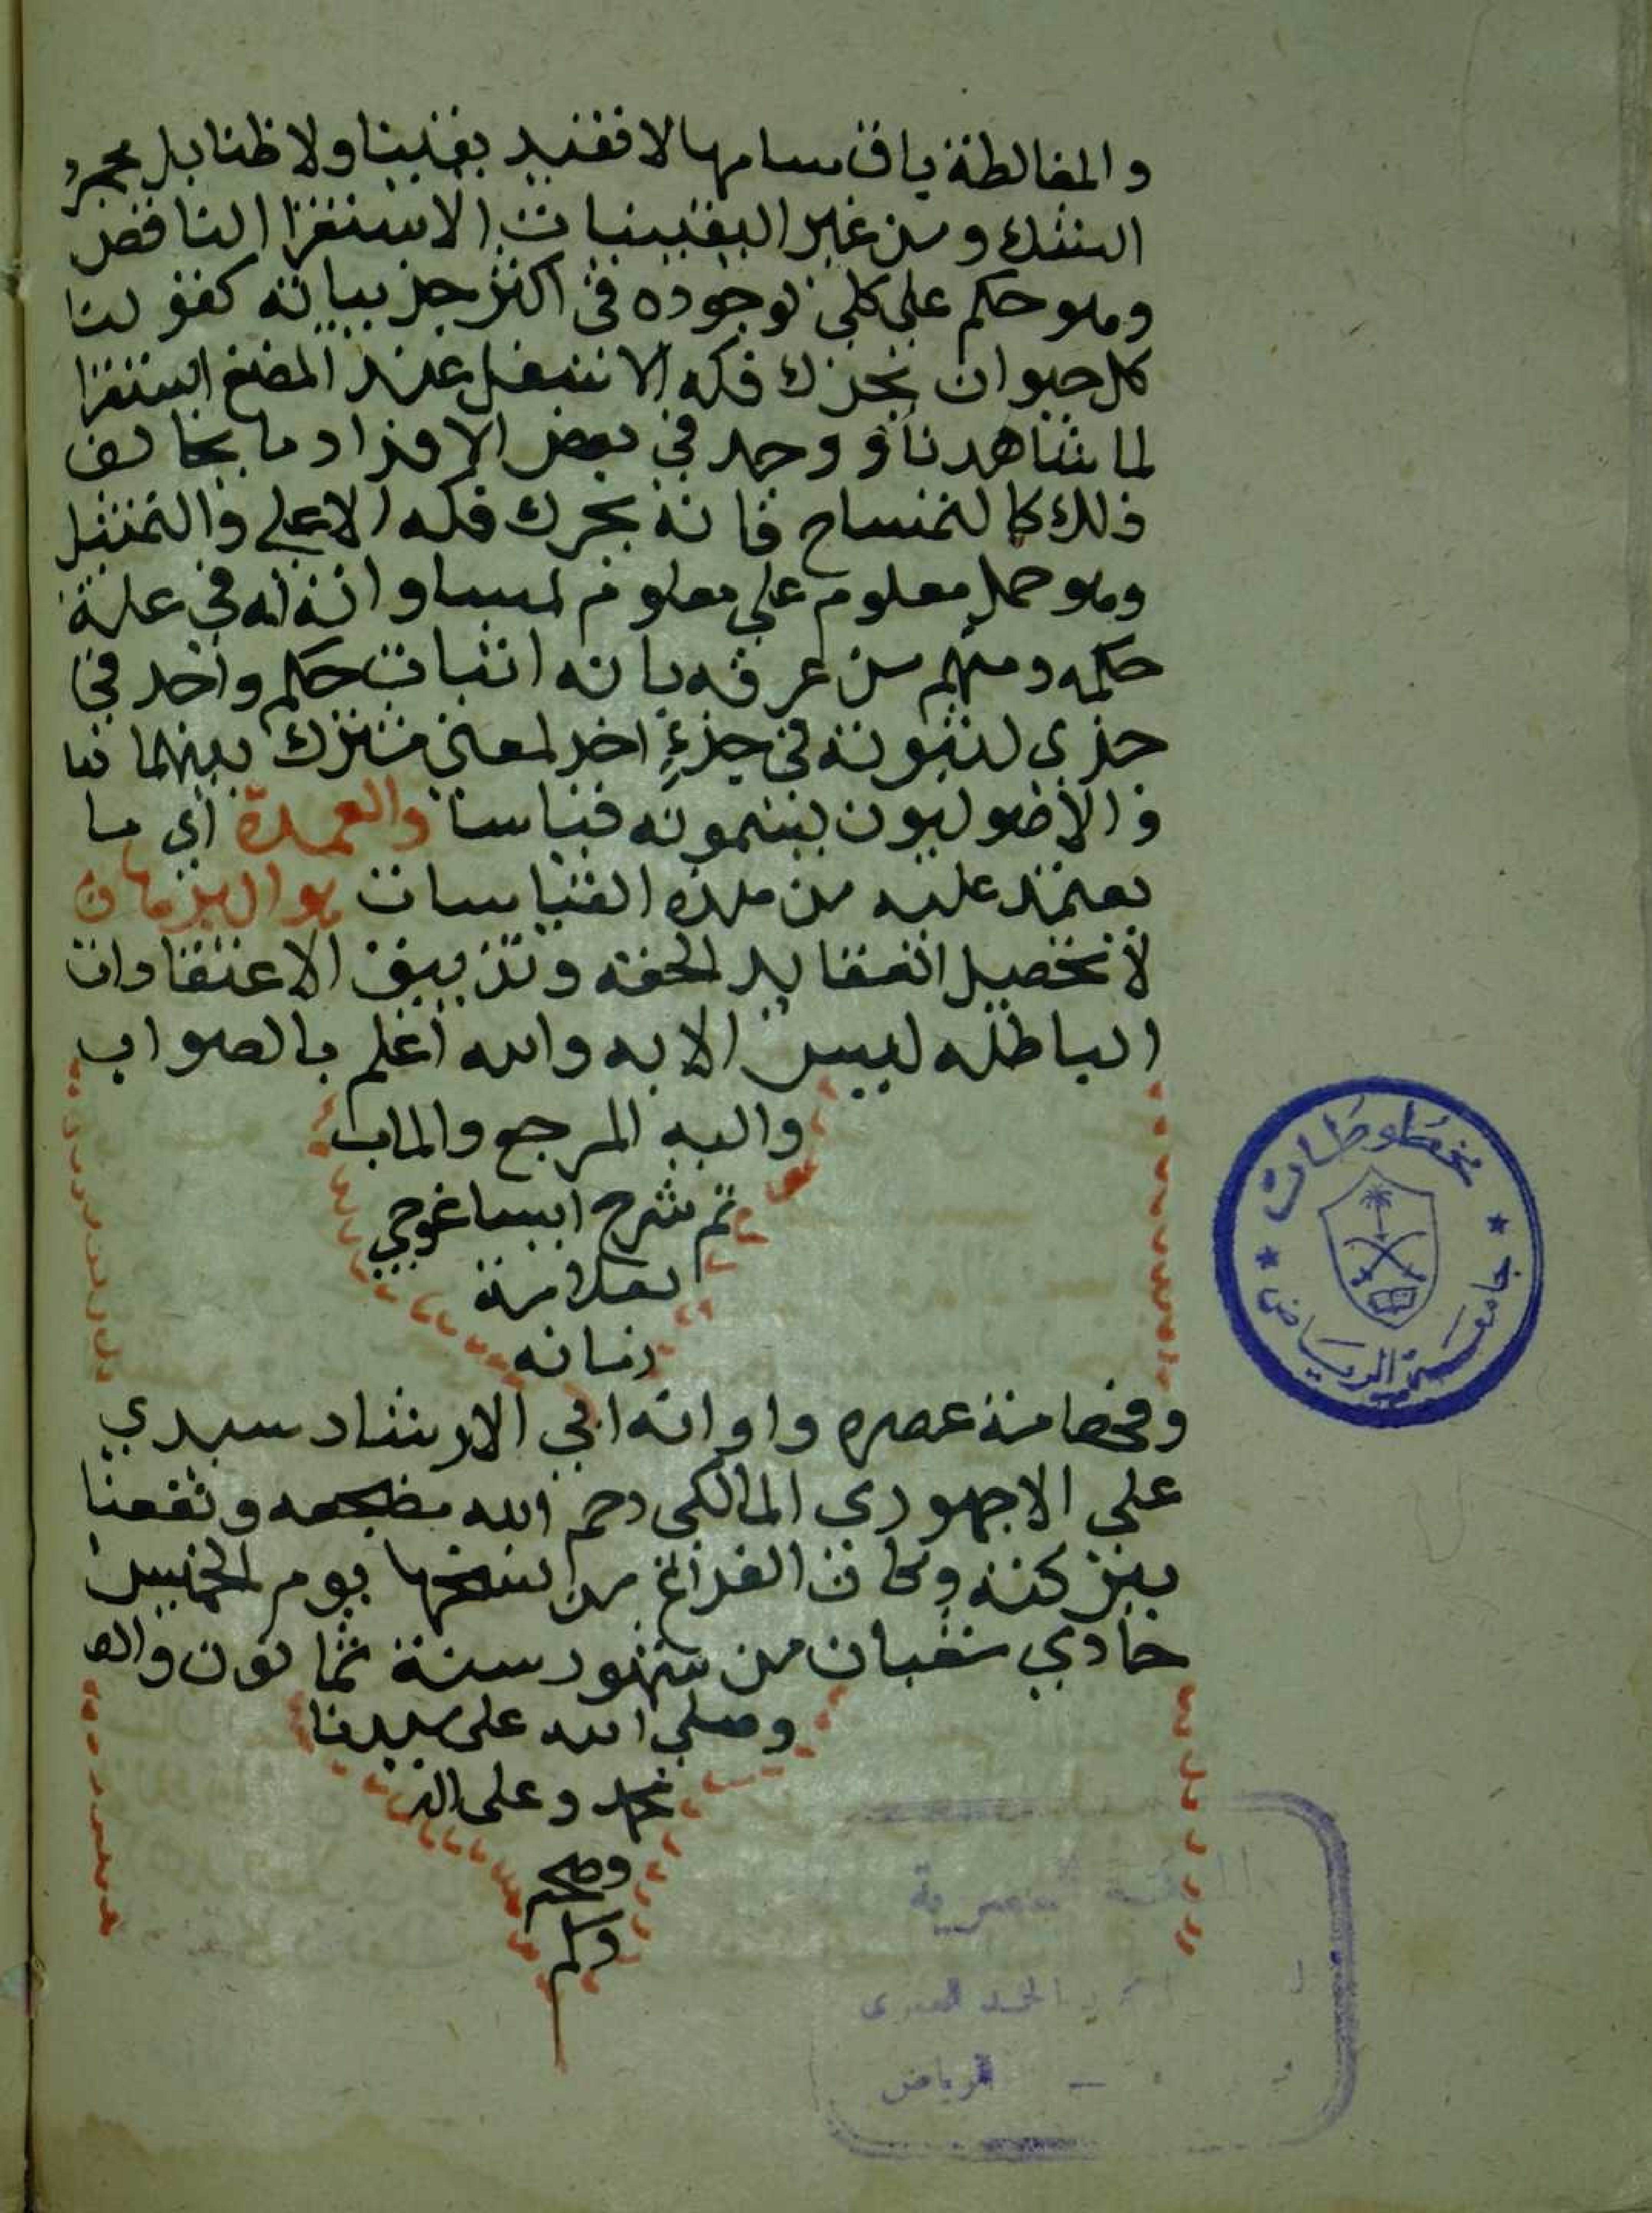 والمغالطة باقسامها لا تفيد يقينا ولا ظنا بل مجرد
الشك ومن غير اليقينيات الاستقرا الناقص
وهو حكم على كلي لوجوده في اكثر جزيياته كقولنا
كل حيوان يحرك فكه الاسفل عند المضغ استقرا
لما شاهدناه ووجد في بعض الافراد ما يخالف
ذلك كالتمساح فانه يحرك فكه الاعلى والتمثيل
وهو حمل معلوم على معلوم لمساواته له في علة
حكمه ومنهم من عرفه بانه اثبات حكم واحد في
جزي لثبوته في جزء اخر لمعنى مشترك بينهما
والاصوليون يسمونه قياسا والعمدة اي ما
يعتمد عليه من هذه القياسات هو البرهان
لان تحصيل العقايد الحقه وتزييف الاعتقادات
الباطله ليس الا به والله اعلم بالصواب
واليه المرجع والماب
تم شرح ايساغوجي
لعلامة
زمانه
وفخامة عصره واوانه ابي الارشاد سيدي
علي الاجهوري المالكي رحم الله مضجعه ونفعنا
ببركته وكان الفراغ من نسخها يوم الخميس
حادي شعبان من شهور سنة ثمانون والف
وصلى الله على سيدنا
محمد وعلى اله
وصحبه
وسلم
مخطوطات
جامعة الرياض
الرياض